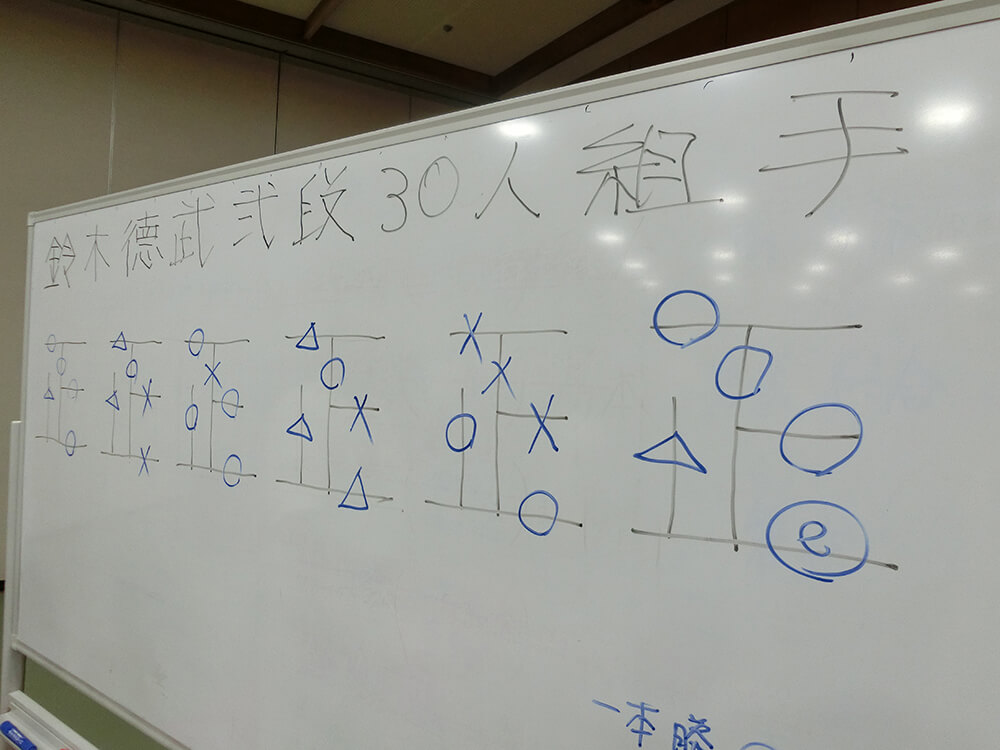 鈴木徳武弐段30人組手
e
一本勝